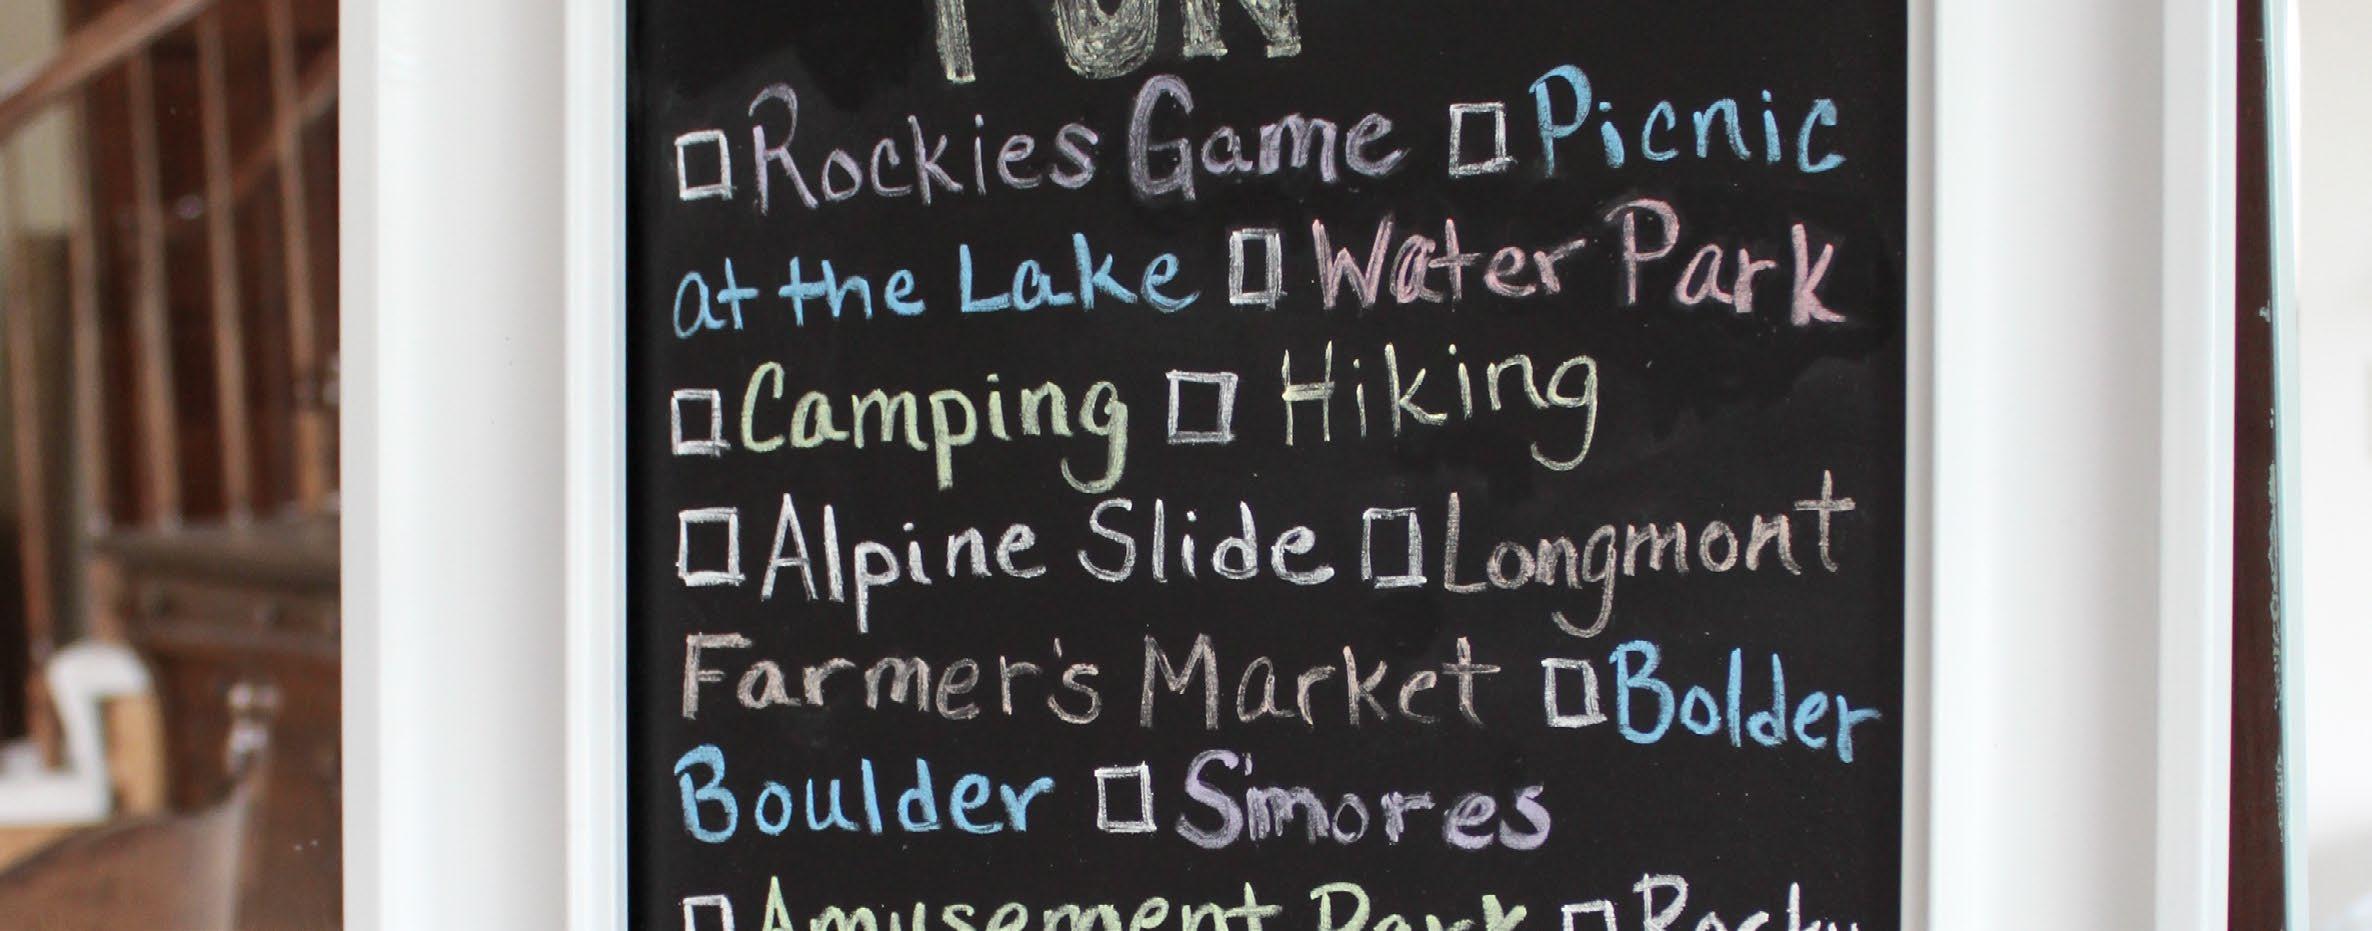 FUN
□ Rockies Game □ Picnic
at the Lake □ Water Park
□ Camping □ Hiking
□ Alpine Slide □ Longmont
Farmer's Market □ Bolder
Boulder □ S'mores
□ Amusement Park □ Rocky